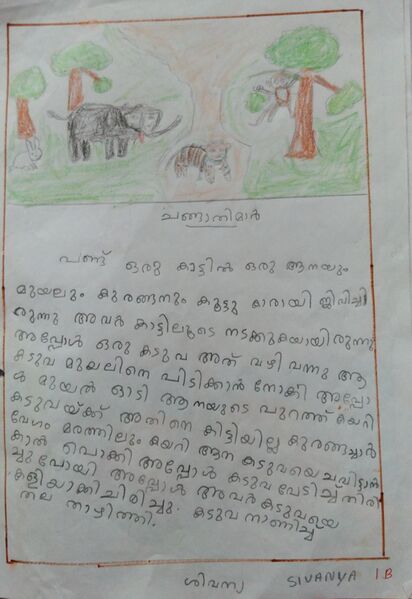 ചങ്ങാതിമാർ
പണ്ട് ഒരു കാട്ടിൽ ഒരു ആനയും
മുയലും കുരങ്ങനും കൂട്ടുകാരായി ജീവിച്ചി
രുന്നു അവർ കാട്ടിലൂടെ നടക്കുകയായിരുന്നു
അപ്പോൾ ഒരു കടുവ അത് വഴി വന്നു ആ
കടുവ മുയലിനെ പിടിക്കാൻ നോക്കി അപ്പോ
ൾ മുയൽ ഓടി ആനയുടെ പുറത്ത് കയറി
കടുവയ്ക്ക് അതിനെ കിട്ടിയില്ല കുരങ്ങച്ചാർ
വേഗം മരത്തിലും കയറി ആന കടുവയെ ചവിട്ടാൻ
കാൽ പൊക്കി അപ്പോൾ കടുവ പേടിച്ച് തിരി
ച്ചുപോയി അപ്പോൾ അവർ കടുവയെ
കളിയാക്കിചിരിച്ചു. കടുവ നാണിച്ച്
തല താഴ്ത്തി.
ശിവന്യ SIVANYA 1.B